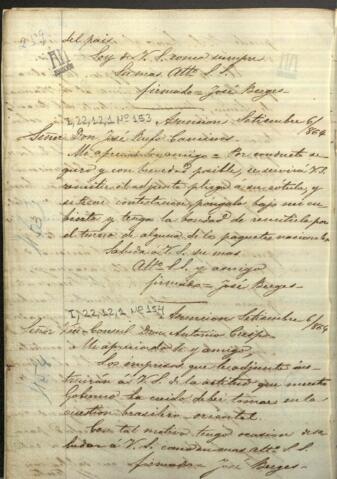 del pais.
Soy de V. S. como siempre
Su mas Atto S. S.
firmado = José Berges =
I,22,12,1 Nº 153 Asuncion Setiembre 6/864
Señor Don José Rufo Caminos
Mi apreciado amigo = Por conducto se-
guro y con brevedad posible, se servirá V.
remitir el adjunto pliego a su rótulo, y
si tiene contestacion, pongala bajo mi cu-
bierta y tenga la bondad de remitirla por
el turno de alguno de los paquetes nacionales
Saluda á V. S. su mas
Atto S. S. y amigo
firmado = José Berges =
I,22,12,1 Nº 154 Asuncion Setiembre 6/864
Señor Consul Don Antonio Crespo
Mi apreciado Sr y amigo,
Los impresos que le adjunto ins-
truirán á V. S. de la actitud que nuestro
Gobierno ha creido deber tomar en la
cuestion brasilero-oriental.
Con tal motivo tengo ocasion de sa-
ludar á V. S. como su mas atto S. S.
firmado = José Berges =